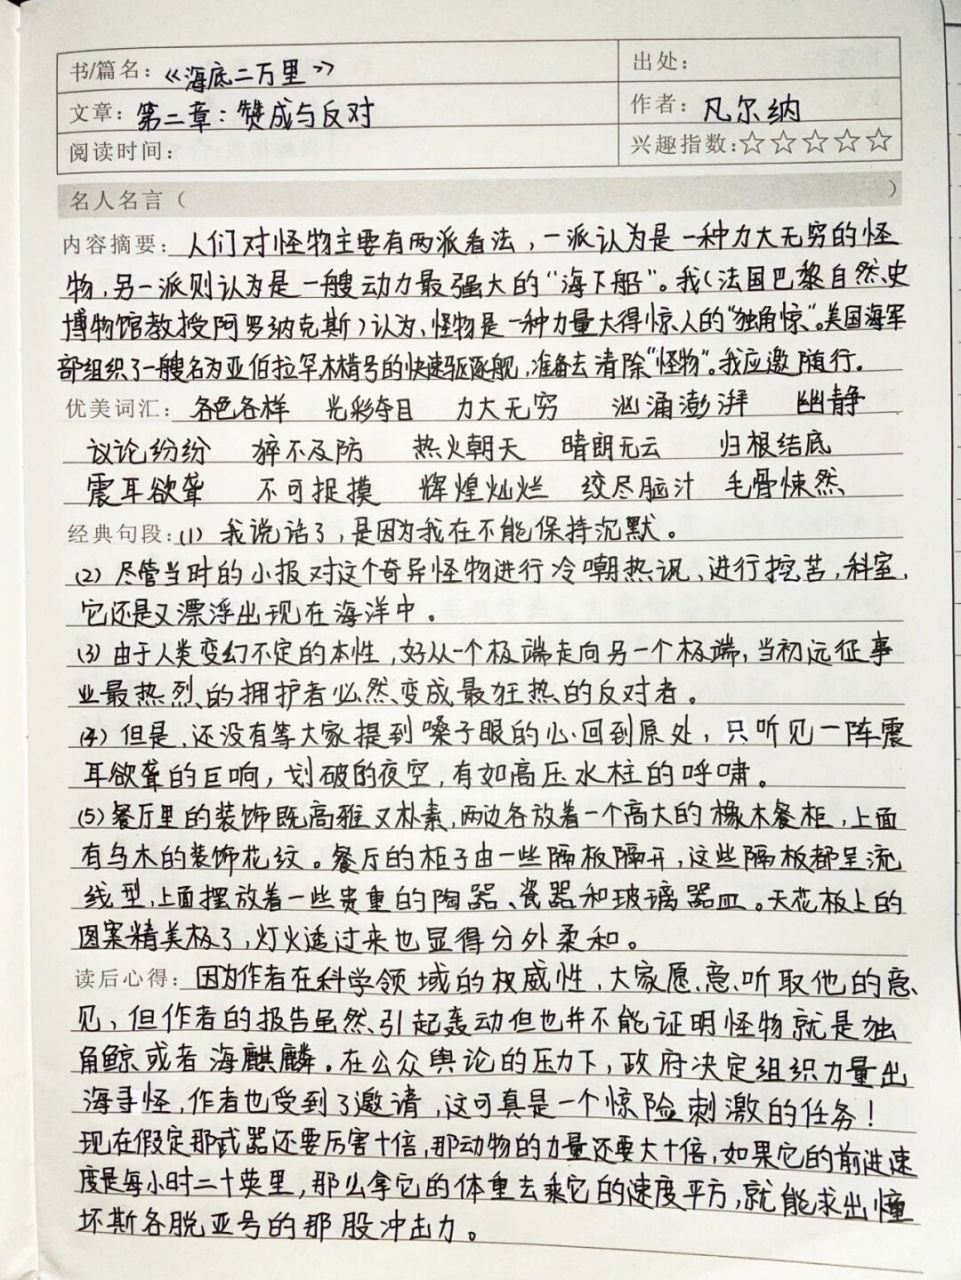 书/篇名：《海底二万里》 出处：
文章：第二章：赞成与反对 作者：凡尔纳
阅读时间： 兴趣指数：☆☆☆☆☆
名人名言（ ）
内容摘要：人们对怪物主要有两派看法，一派认为是一种力大无穷的怪
物，另一派则认为是一艘动力最强大的“海下船”。我（法国巴黎自然史
博物馆教授阿罗纳克斯）认为，怪物是一种力量大得惊人的“独角惊”。美国海军
部组织了一艘名为亚伯拉罕.林肯号的快速驱逐舰，准备去清除“怪物”。我应邀随行。
优美词汇：各色各样 光彩夺目 力大无穷 汹涌澎湃 幽静
议论纷纷 猝不及防 热火朝天 晴朗无云 归根结底
震耳欲聋 不可捉摸 辉煌灿烂 绞尽脑汁 毛骨悚然
经典句段：(1) 我说话了，是因为我在不能保持沉默。
(2) 尽管当时的小报对这个奇异怪物进行冷嘲热讽、进行挖苦，科室，
它还是又漂浮出现在海洋中。
(3) 由于人类变幻不定的本性，好从一个极端走向另一个极端，当初远征事
业最热烈的拥护者必然变成最狂热的反对者。
(4) 但是，还没有等大家提到嗓子眼的心回到原处，只听见一阵震
耳欲聋的巨响，划破的夜空，有如高压水柱的呼啸。
(5) 餐厅里的装饰既高雅又朴素，两边各放着一个高大的橡木餐柜，上面
有乌木的装饰花纹。餐厅的柜子由一些隔板隔开，这些隔板都呈流
线型，上面摆放着一些贵重的陶器、瓷器和玻璃器皿。天花板上的
图案精美极了，灯火透过来也显得分外柔和。
读后心得：因为作者在科学领域的权威性，大家愿意听取他的意
见，但作者的报告虽然引起轰动但也并不能证明怪物就是独
角鲸或者海麒麟。在公众舆论的压力下，政府决定组织力量出
海寻怪，作者也受到了邀请，这可真是一个惊险刺激的任务！
现在假定那武器还要厉害十倍，那动物的力量还要大十倍，如果它的前进速
度是每小时二十英里，那么拿它的体重去乘它的速度平方，就能求出撞
坏斯各脱亚号的那股冲击力。